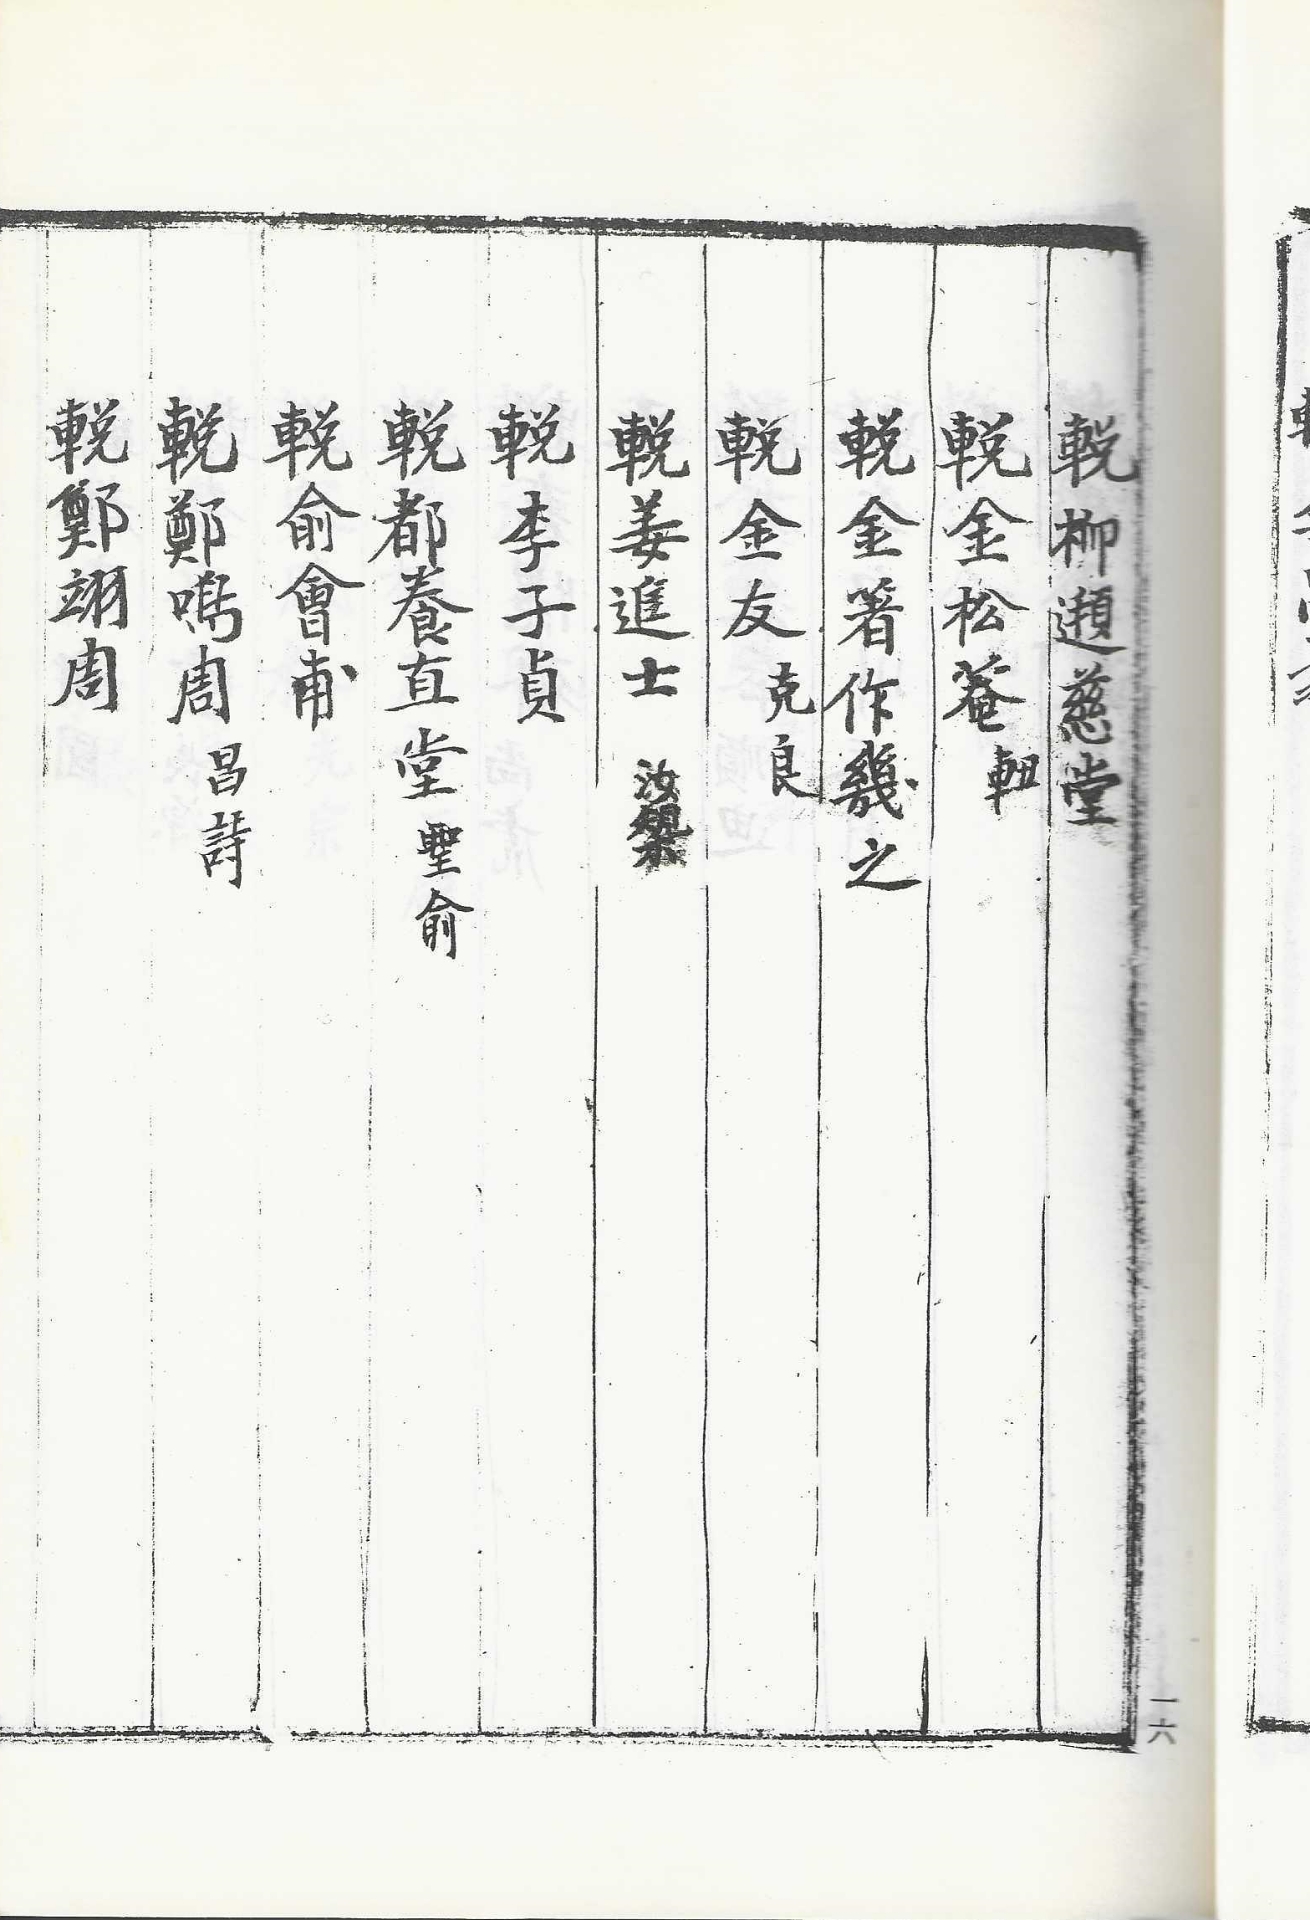 輓柳遯慈堂
輓金松菴 軸
輓金著作幾之
輓金友 克良
輓姜進士 汝
輓李子貞
輓都養直堂 聖俞
輓俞會甫
輓鄭鳴周 昌詩
輓鄭翊周
一六